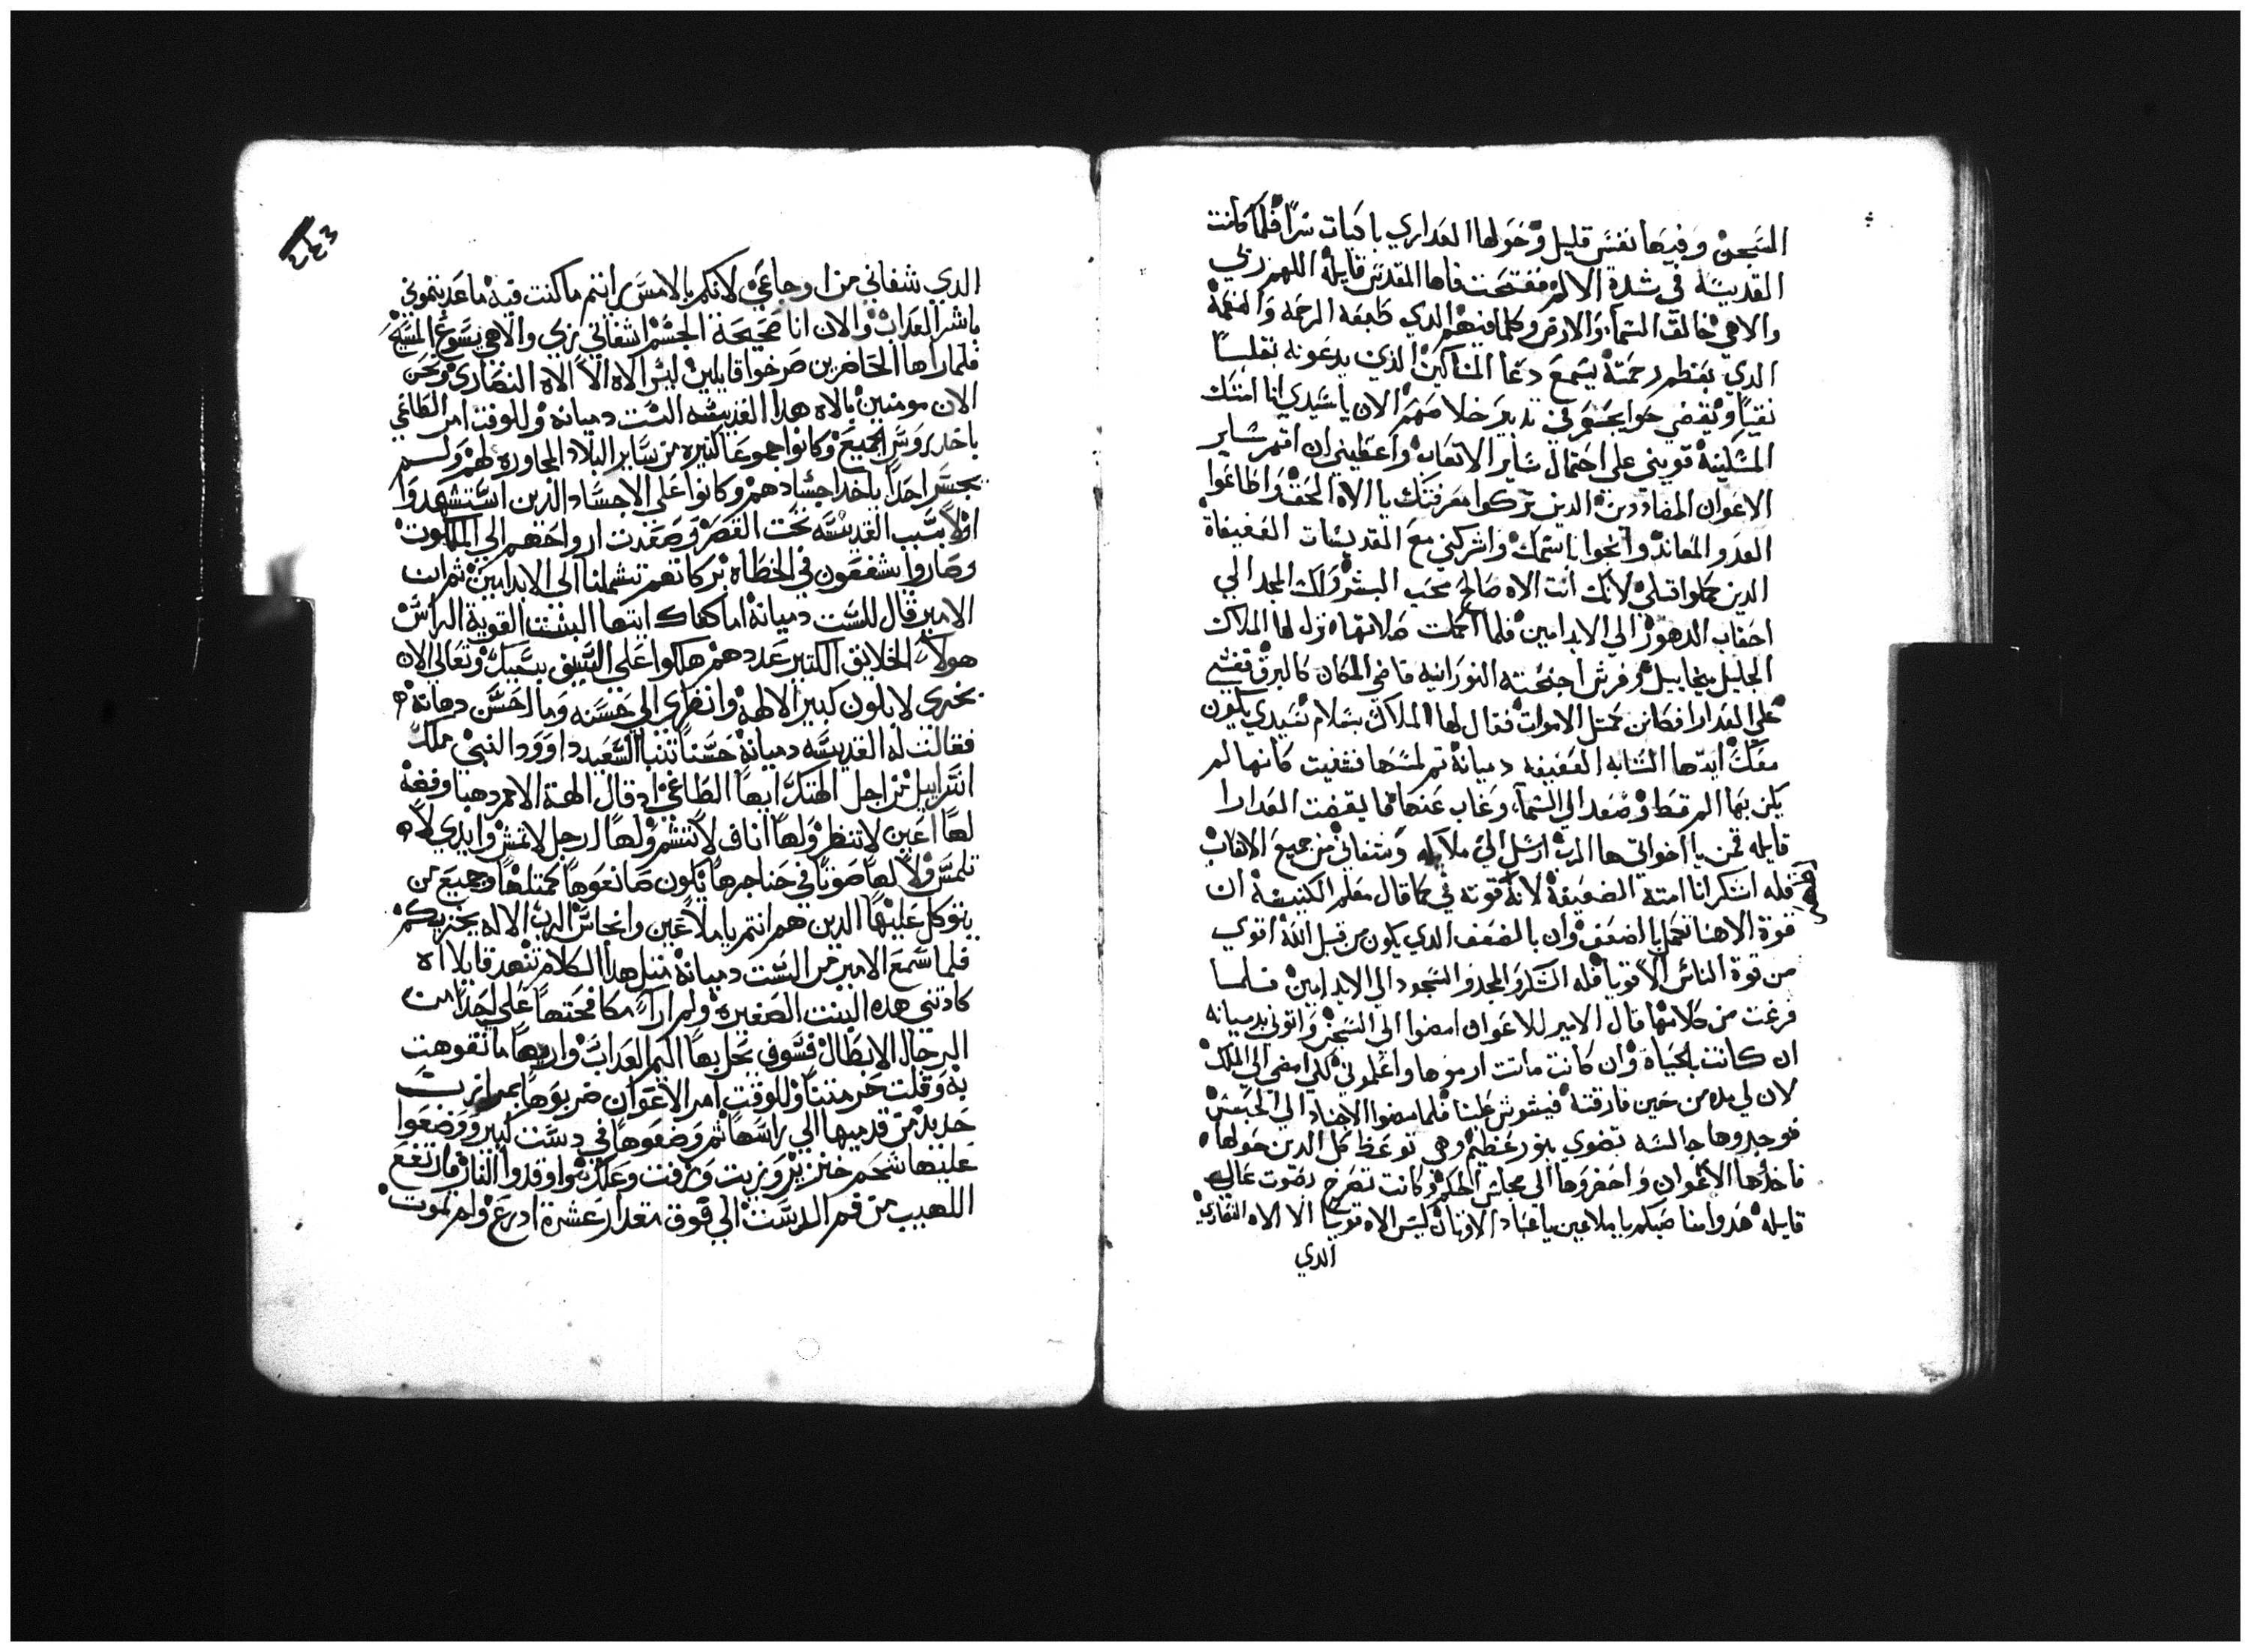 السجن وفيها نفس قليل وحولها العداري باكيات سراً فلما كانت
القديسة في شدة الالم ففتحت فاها المقدس قايلة اللهم ربي
والاهي خالق السما والارض وكلما فيهم الدي طبعه الرحمه والنعمة
الدي بعظم رحمتة يسمع دعا المساكين الذين يدعونه بقلب
نقياً ويقضي حوايجهم في تدبير خلاصهم الان ياسيدي انا امتك
المسكينة قويني على احتمال ساير الاتعاب واعطيني ان اقهر ساير
الاعوان المضاددين الدين تركوا معرفتك يا الاه الحق واطاعوا
العدو المعاند وانجوا باسمك واشركني مع القديسات العفيفاة
الدين كملوا قبلي لانك انت الاه صالح محب البشر ولك المجد الي
احقاب الدهور الي الابد امين فلما اكملت صلاتها نزل لها الملاك
الجليل ميخاييل وفرش اجنحته النورانيه فاضي المكان كالبرق فغشي
علي العدارا فكانن كمتل الاموات فقال لها الملاك سلام سيدي يكون
معك ايتها الشابه العفيفه دميانة تم لمسها فشفيت كانها لم
يكن بها الم قط وصعد الي السماء وغاب عنها فايقضت العدارا
قايله قمن يا اخواتي ها الرب ارسل الي ملاكه وشفاني من جميع الاتعاب
فله اشكر انا امته الضعيفة لانه قوته في كما قال معلم الكنيسة ان
قوة الاهنا تكمل بالضعف وان بالضعف الدي يكون من قبل الله اقوي
من قوة الناس الاقويا فله الشكر والمجد والسجود الي الابد امين فلما
فرغت من كلامها قال الامير للاعوان امضوا الي السجن واتوني بدميانه
ان كانت بالحياة وان كانت ماتت ارموها واعلموني لكي امضي الي الملك
لان لي مده من حين فارقته فيشوش علينا فلما مضوا الاجناد الي الحبس
فوجدوها جالسه تضوي بنور عظيم وهي توعظ كل الدين حولها
فاخدها الاعوان واحضروها الى مجلس الحكم وكانت تصرخ بصوت عالي
قايله هدوا منا ضبكم يا ملاعين يا عباد الاوتان ليس الاه قوياً الا الاه النصاري
الدي
٢٤٣
الدي شفاني من اوجاعي لانكم بالامس رايتم ما كنت فيه ما عدبتموني
باشر العداب والان انا صحيحة الجسم اشفاني ربي والاهي يسوع المسيح
فلما راها الحاضرين صرخوا قايلين ليس الاه الا الاه النصاري ونحن
الان مومنين بالاه هدا القديسه الست دميانه وللوقت امر الطاغي
باخد روس الجميع وكانوا جموعاً كتيره من ساير البلاد المجاوره لهم ولم
يجسر احداً ياخد اجسادهم وكانوا على الاجساد الدين استشهدوا
اولاً بسبب القديسه تحت القصر وصعدت ارواحهم الي الملكوت
وصاروا يشفعون في الخطاه بركاتهم تشملنا الى الابد امين ثم ان
الامير قال للست دميانة اما كفاك ايتها البنت القوية الراس
هولاء الخلايق الكتير عددهم هلكوا على السيف بسببك وتعالي الان
بخري لابلون كبير الالهة وانظري الي حسنه وما احسن دهاتة
فقالت له القديسه دميانة حسناً تنبا السعيد داوود النبي ملك
اسراييل من اجل الهتك ايها الطاغي اد قال الهة الامم دهبا وفضة
لها اعين لا تنظر ولها اناف لا تشم ولها ارجل لا تمش وايدي لا
تلمس ولا لها صوتاً في حناجرها يكون صانعوها كمتلها وجميع من
يتوكل عليها الدين هم انتم يا ملاعين وانجاس الرب الاله يخزيكم
فلما سمع الامير من الست دميانة متل هدا الكلام تنهد قايلا اه
كادتني هده البنت الصغيره ولم اراء مكافحتها على احداً من
الرجال الابطال فسوف نحل بها اليم العداب واريها ما تفوهت
به وقلت حرمتنا وللوقت امر الاعوان ضربوها بمرازب
حديد من قدميها الي راسها ثم وضعوها في دست كبير ووضعوا
عليها شحم خنزير وزيت وزفت وعلكوا واوقدوا النار فارتفع
اللهيب من فم الدست الي فوق مقدار عشرة ادرع ولم تموت